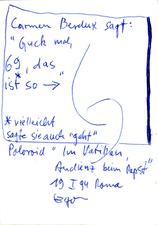 Carmen Berdux sagt:
"Guck mal,
69, das
ist* so →"
* vielleicht
sagte sie auch "geht"
Poloroid "Im Vatikan,
Audienz beim Papst"
19 I 94 Roma